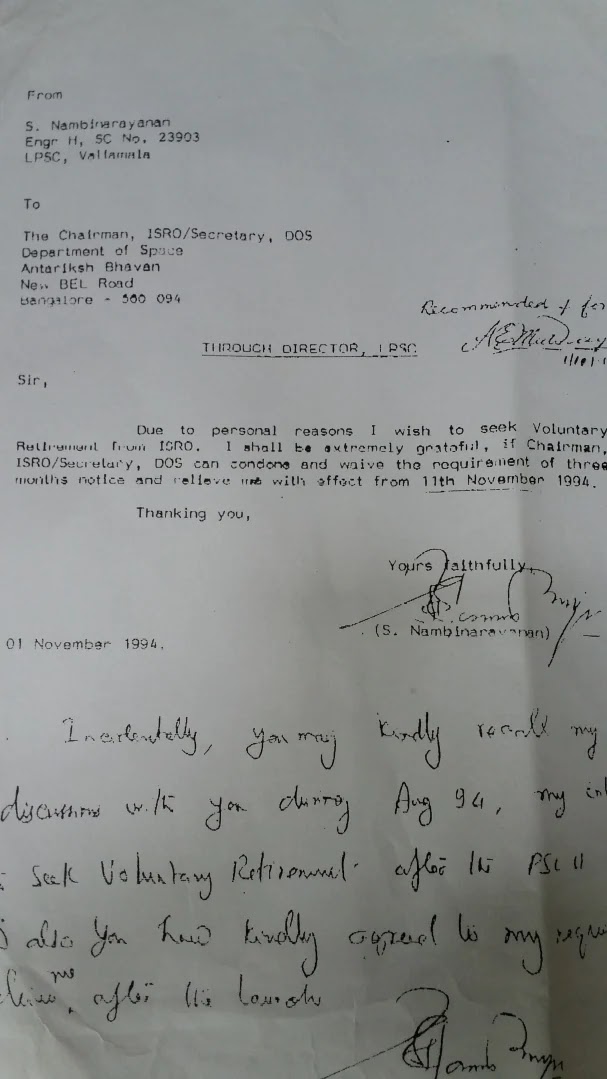 From
S. Nambinarayanan
Engr H, SC No. 23903
LPSC, Valiamala
To
The Chairman, ISRO/Secretary, DOS
Department of Space
Antariksh Bhavan
New BEL Road
Bangalore - 560 094
Recommended & for
THROUGH DIRECTOR, LPSC
Sir,
Due to personal reasons I wish to seek Voluntary
Retirement from ISRO. I shall be extremely grateful, if Chairman,
ISRO/Secretary, DOS can condone and waive the requirement of three
months notice and relieve me with effect from 11th November 1994.
Thanking you,
Yours faithfully,
(S. Nambinarayanan)
01 November 1994.
Incidentally, you may kindly recall my
discussions with you during Aug 94, my
seek Voluntary Retirement after the
also you have kindly agreed to my
me
after the launch